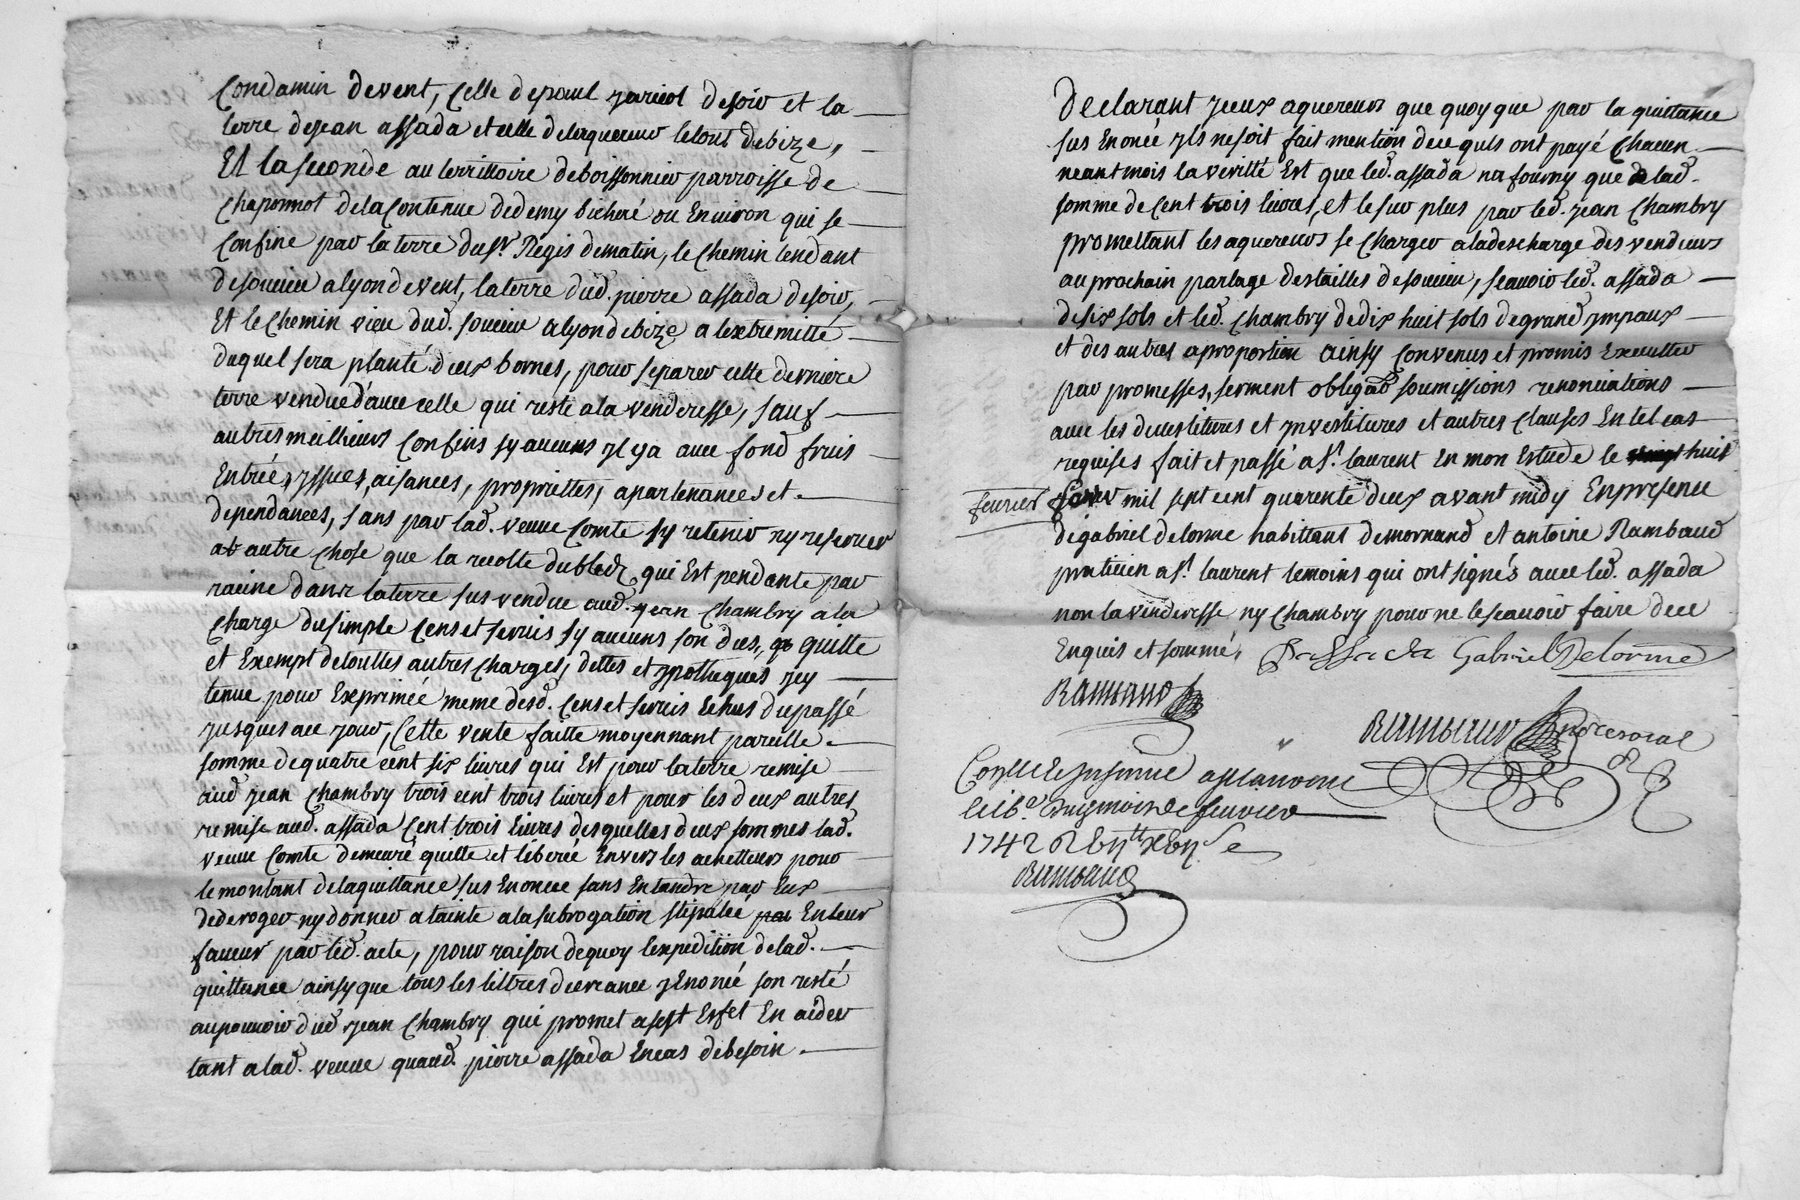 Condamin devent, Celle depaul jaricot desoir et la
terre dejean assada et celle delaquereur letout debize,
Et la seconde au territtoire deboissonnier parroisse de
chaponnot delaContenue dedemy bicheré ou Environ qui se
Confine par la terre du Sr. Regis dematin, le Chemin tendant
desoucieu alyon devent, laterre dud. pierre assada desoir,
Et le Chemin vieu dud. soucieu alyon debize a lextremitté
duquel sera planté deux bornes, pour separer cette derniere
terre vendue d'avec celle qui reste a la venderesse, sauf
autres meilheurs Confins sy aucuns yl y a avec fond fruis
Entrée, yssues, aisances, propriettes, apartenances et
dependances, sans par lad. veuve Comte sy retenir ny reserver
autre chose que la recolte dubled qui Est pendante par
racine dans laterre sus vendue aud. jean Chambry a la
Charge dusimple Cens et servis sy aucuns son dus, quitte
et Exempt detouttes autres charges, dettes et ypotheques icy
tenue pour Exprimée meme desd. Cens et servis Echus dupassé
jusques ace jour, Cette vente faitte moyennant pareille
somme dequatre cent six livres qui Est pour laterre remise
aud jean Chambry trois cent trois livres et pour les deux autres
remise aud. assada Cent trois livres desquelles deux sommes lad.
veuve Comte demeure quitte et liberée Envers les achetteurs pour
le montant delaquittance sus Enoncée sans Entandre par Eux
dederoger ny donner atainte a la subrogation stipulée par Enleur
faveur par led. acte, pour raison dequoy lexpedition delad.
quittance ainsy que tous les littres decreance yEnoncé son resté
aupouvoir dud jean Chambry qui promet a cest Esfet En aider
tant a lad. veuve quaud. pierre assada Encas debesoin
Declarant yceux aquereurs que quoyque par la quittance
sus Enoncé yls nesoit fait mention dece quls ont payé Chacun
neantmois la verité Est que led. assada na fourny que delad.
somme de cent trois livres, et le sur plus par led. jean Chambry
promettant les aquereurs se Charger a ladescharge des vendeurs
au prochain partage destailles desoucieu, scavoir led. assada
desix sols et led. Chambry dedix huit sols degrand ympaux
et des autres aproportion ainsy Convenus et promis Executter
par promesses, serment obligaõ soumissions renonciations
avec les devestitures et ynvestitures et autres Clauses En tel cas
requises fait et passé a St. laurent En mon Estude le vingt huit
fevrier mil sept cent quarente deux avant midy Enpresence
de gabriel delorme habittant demornand et antoine Rambaud
praticien a St. laurent temoins qui ont signés avec led. assada
non la venderesse ny Chambry pour ne le scavoir faire dece
Enquis et sommé, P assada Gabriel Delorme
Rambaud
Rambaud
1742
Rambaud